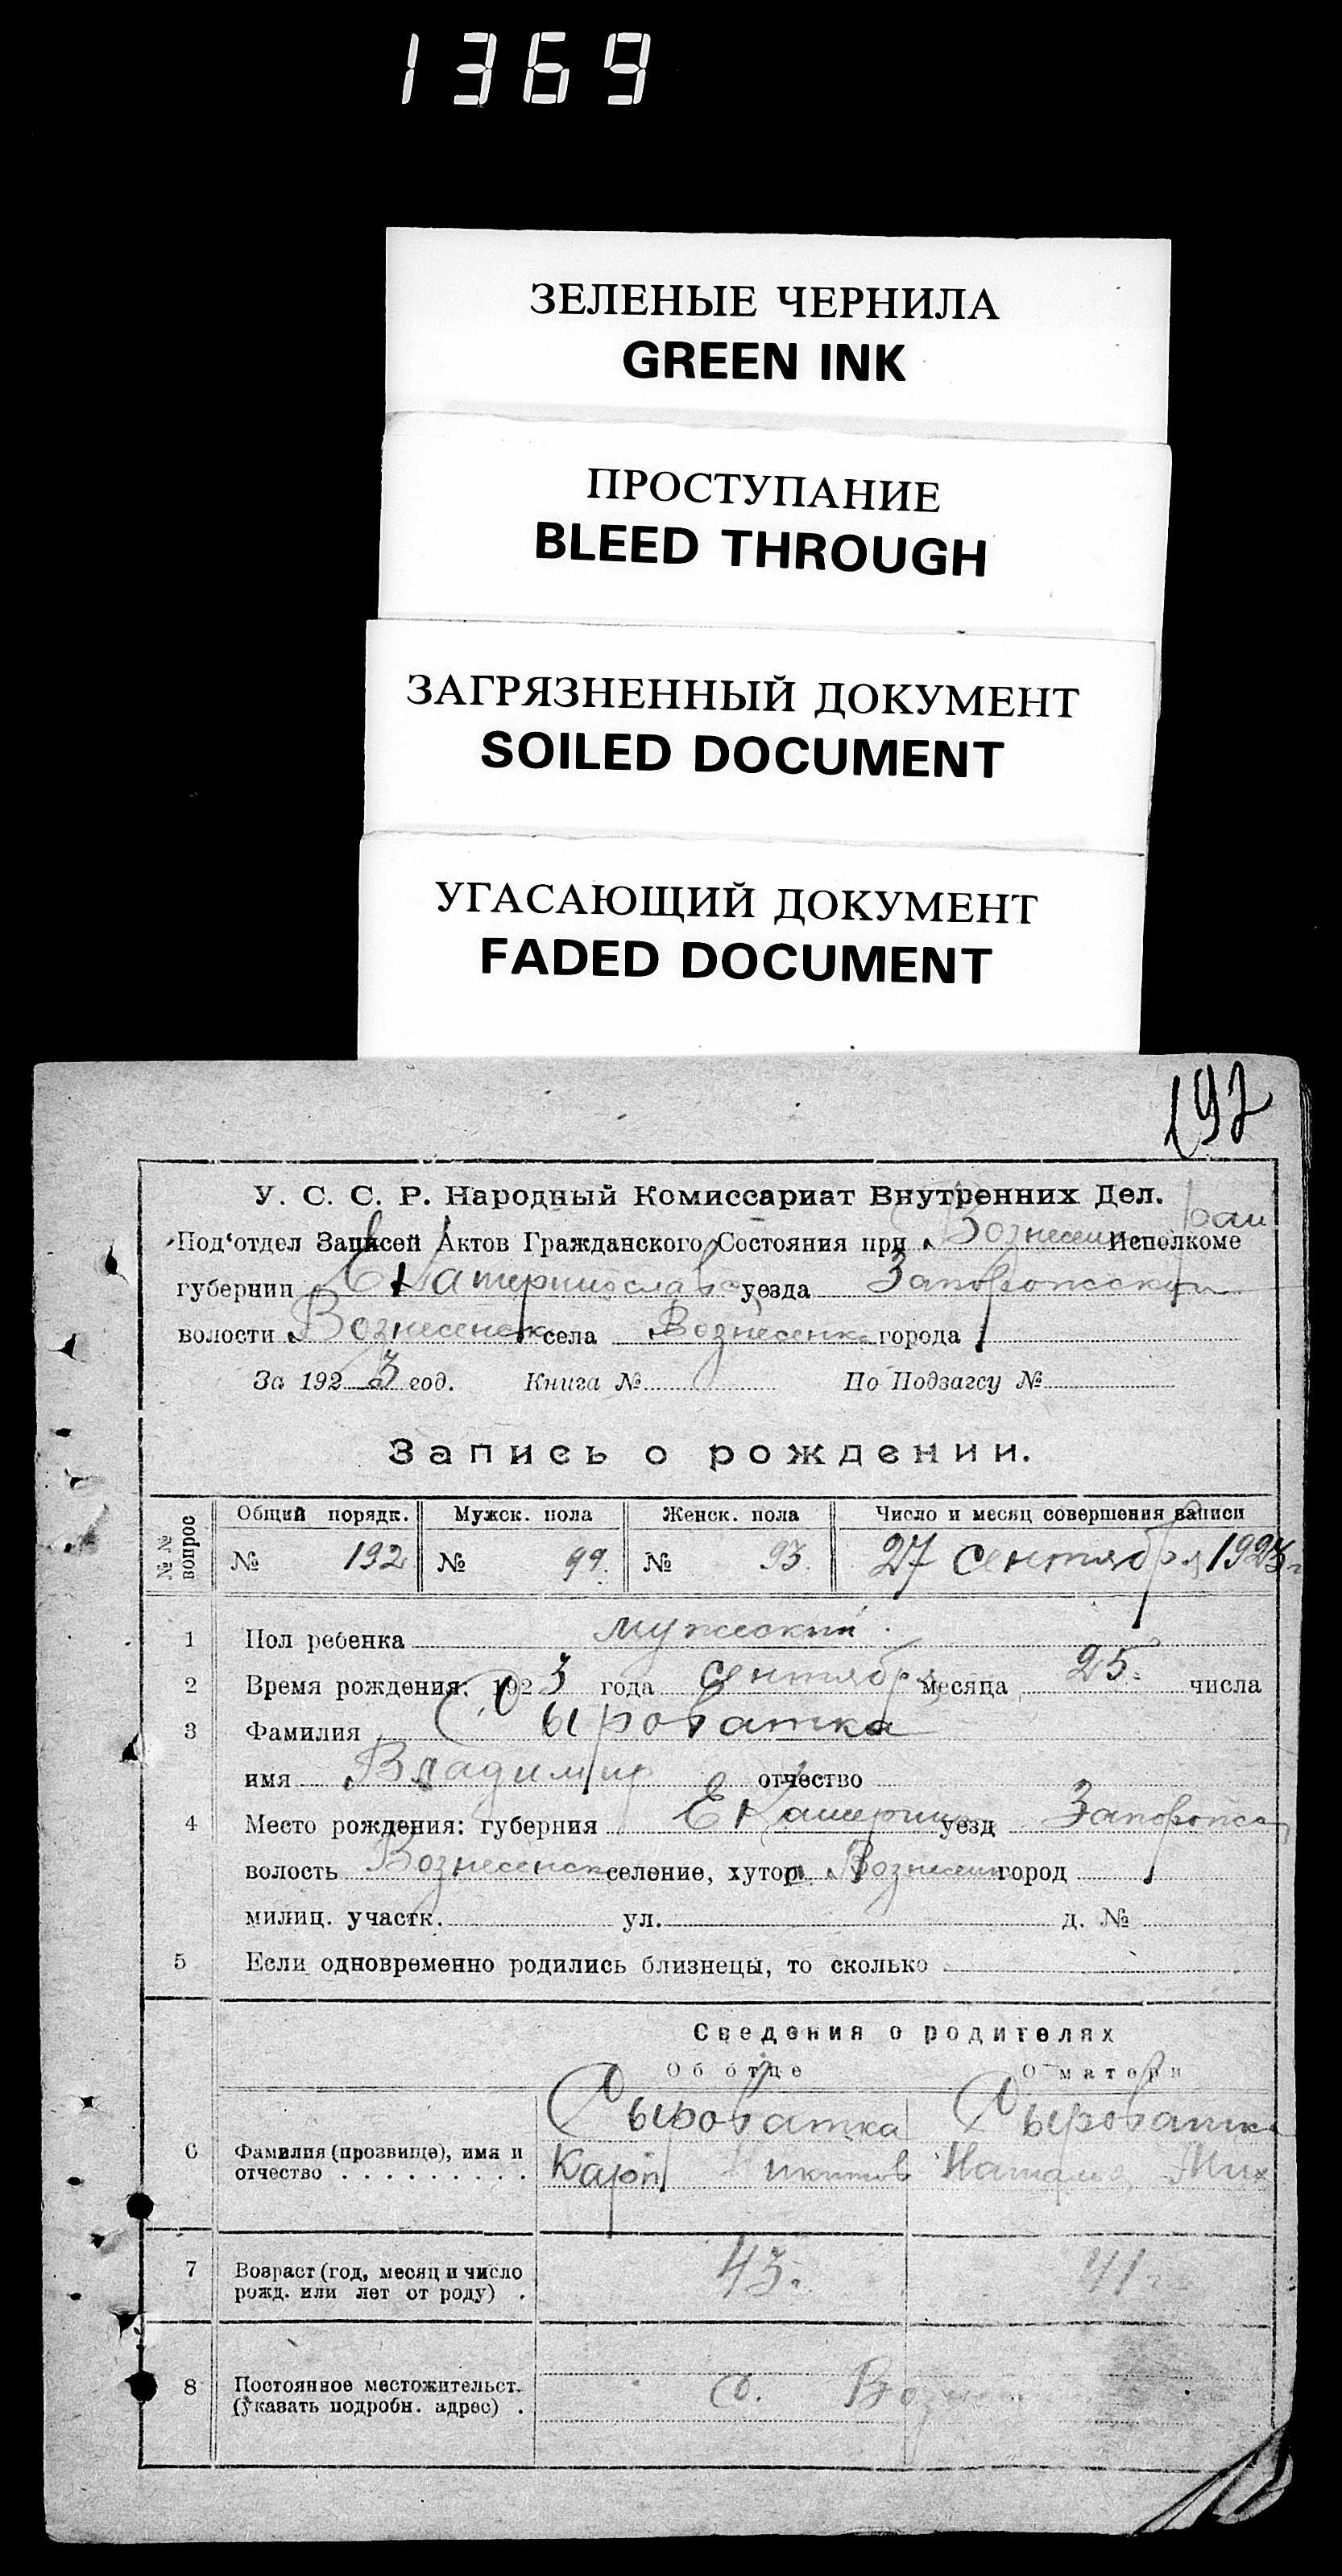 1369
ЗЕЛЕНЫЕ ЧЕРНИЛА
GREEN INK
ПРОСТУПАНИЕ
BLEED THROUGH
ЗАГРЯЗНЕННЫЙ ДОКУМЕНТ
SOILED DOCUMENT
УГАСАЮЩИЙ ДОКУМЕНТ
FADED DOCUMENT
192
У. С. С. Р. Народный Комиссариат Внутренних Дел.
Под'отдел Записей Актов Гражданского Состояния при Вознесенс. рай Исполкоме
губернии Екатеринослав уезда Запорожский
волости Вознесенск села Вознесенка города
За 1923 год. Книга № По Подзагсу №
Запись о рождении.
№№ вопрос
Общий порядк. Мужск. пола Женск. пола Число и месяц совершения записи
№ 192 № 99. № 93. 27 сентября 1923 г
1 Пол ребенка мужеский.
2 Время рождения: 1923 года сентября месяца 25. числа
3 Фамилия Сыроватка
имя Владимир отчество
4 Место рождения: губерния Екатерин уезд Запорожс
волость Вознесенск селение, хутор Вознесенк город
милиц. участк. ул. д. №
5 Если одновременно родились близнецы, то сколько
Сведения о родителях
Об отце О матери
Сыроватка Сыроватка
6 Фамилия (прозвище), имя и
отчество Карп Никитов Наталия Мих
7 Возраст (год, месяц и число 43. 41
рожд. или лет от роду)
8 Постоянное местожительст. с. Возне
(указать подробн. адрес)